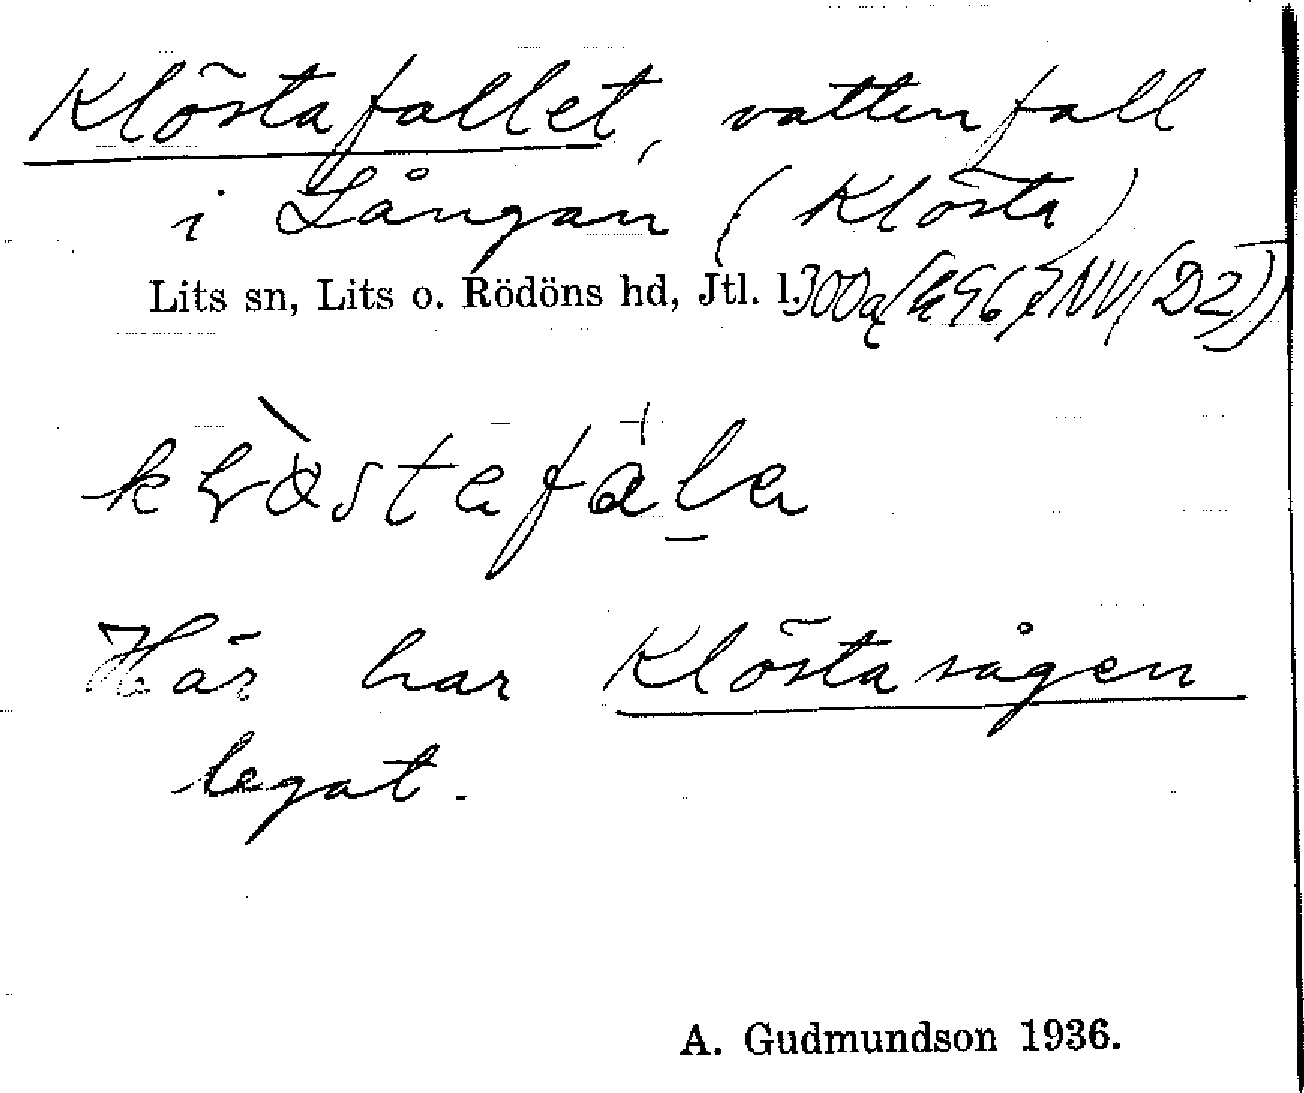 Klöstafallet, vattenfall
i Långan (Klösta)
Lits sn, Lits o. Rödöns hd, Jtl. l. 300a
Här har Klöstasågen
legat.
A. Gudmundson 1936.